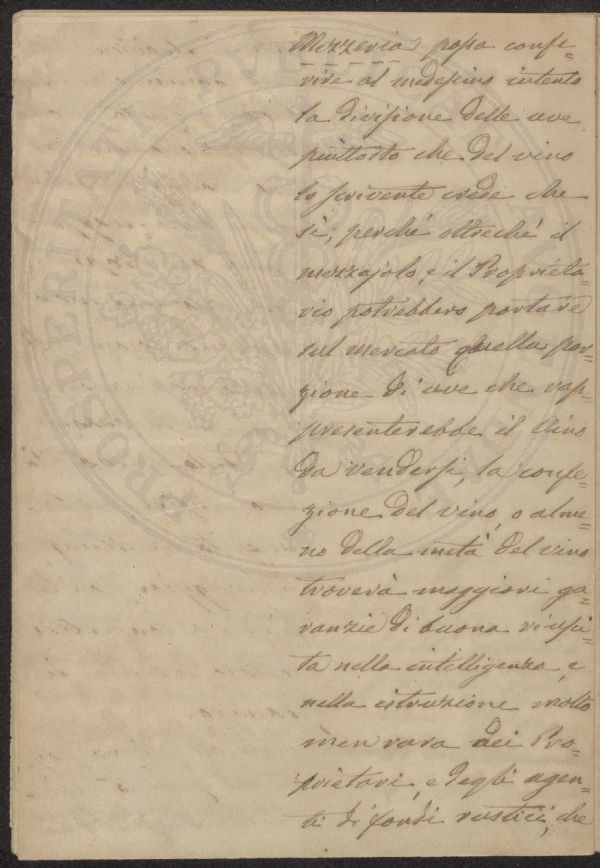 Mezzeria, possa confe=
rire al medesimo intento
la divisione delle uve
piuttosto che del vino
lo scrivente crede che
sì; perché oltreché il
mezzajolo, e il Proprieta=
rio potrebbero portare
sul mercato quella por=
zione di uve che rap=
presenterebbe il vino
da vendersi, la confe=
zione del vino, o alme=
no della metà del vino
troverà maggiori ga=
ranzie di buona riusci=
ta nella intelligenza, e
nella istruzione molto
men rara dei Pro=
prietari, e degli agen=
ti di fondi rustici, che